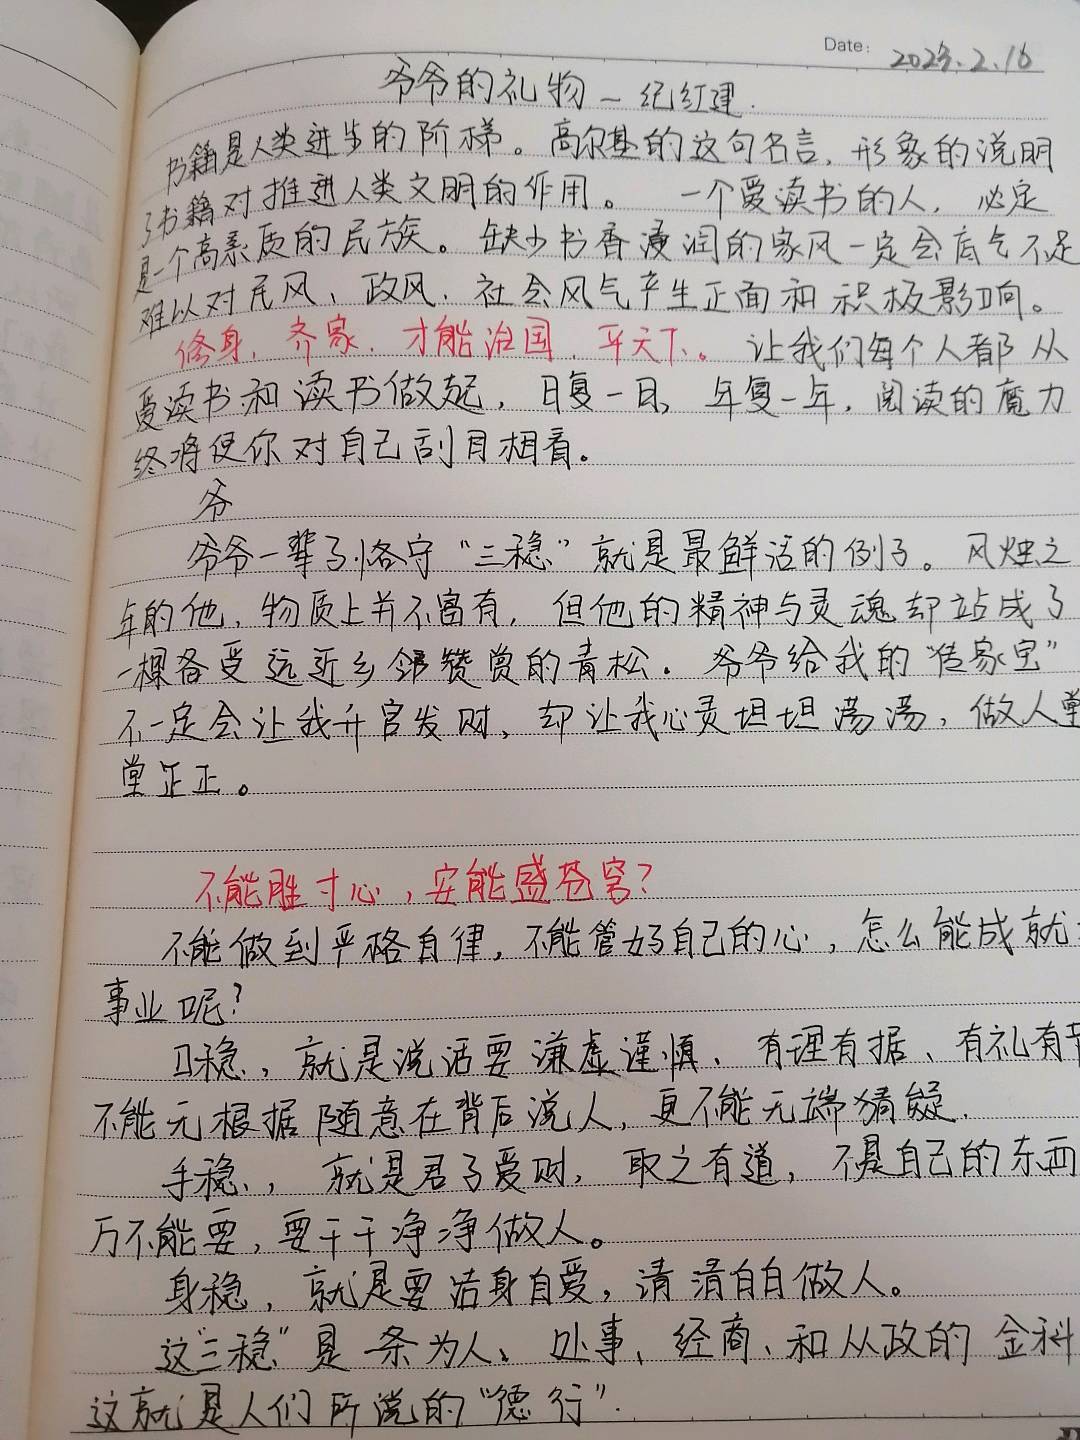 Date: 2023.2.16
爷爷的礼物 — 纪红建.
书籍是人类进步的阶梯。高尔基的这句名言,形象的说明
了书籍对推进人类文明的作用。 一个爱读书的人, 必定
是一个高素质的民族。缺少书香浸润的家风一定会底气不足
难以对民风、政风、社会风气产生正面和积极影响。
修身、齐家、才能治国、平天下。让我们每个人都从
爱读书和读书做起,日复一日,年复一年,阅读的魔力
终将使你对自己刮目相看。
爷
爷爷一辈子恪守“三稳”就是最鲜活的例子。风烛之
年的他,物质上并不富有,但他的精神与灵魂却站成了
一棵备受远近乡邻赞赏的青松.爷爷给我的“传家宝”
不一定会让我升官发财,却让我心灵坦坦荡荡,做人堂
堂正正。
不能胜寸心,安能盛苍穹?
不能做到严格自律,不能管好自己的心,怎么能成就
事业呢?
口稳,就是说话要谦虚谨慎、有理有据、有礼有节
不能无根据随意在背后说人,更不能无端猜疑.
手稳,就是君子爱财,取之有道,不是自己的东西
万不能要,要干干净净做人。
身稳,就是要洁身自爱,清清白白做人。
这“三稳”是一条为人、处事、经商、和从政的金科
这就是人们所说的“德行”.